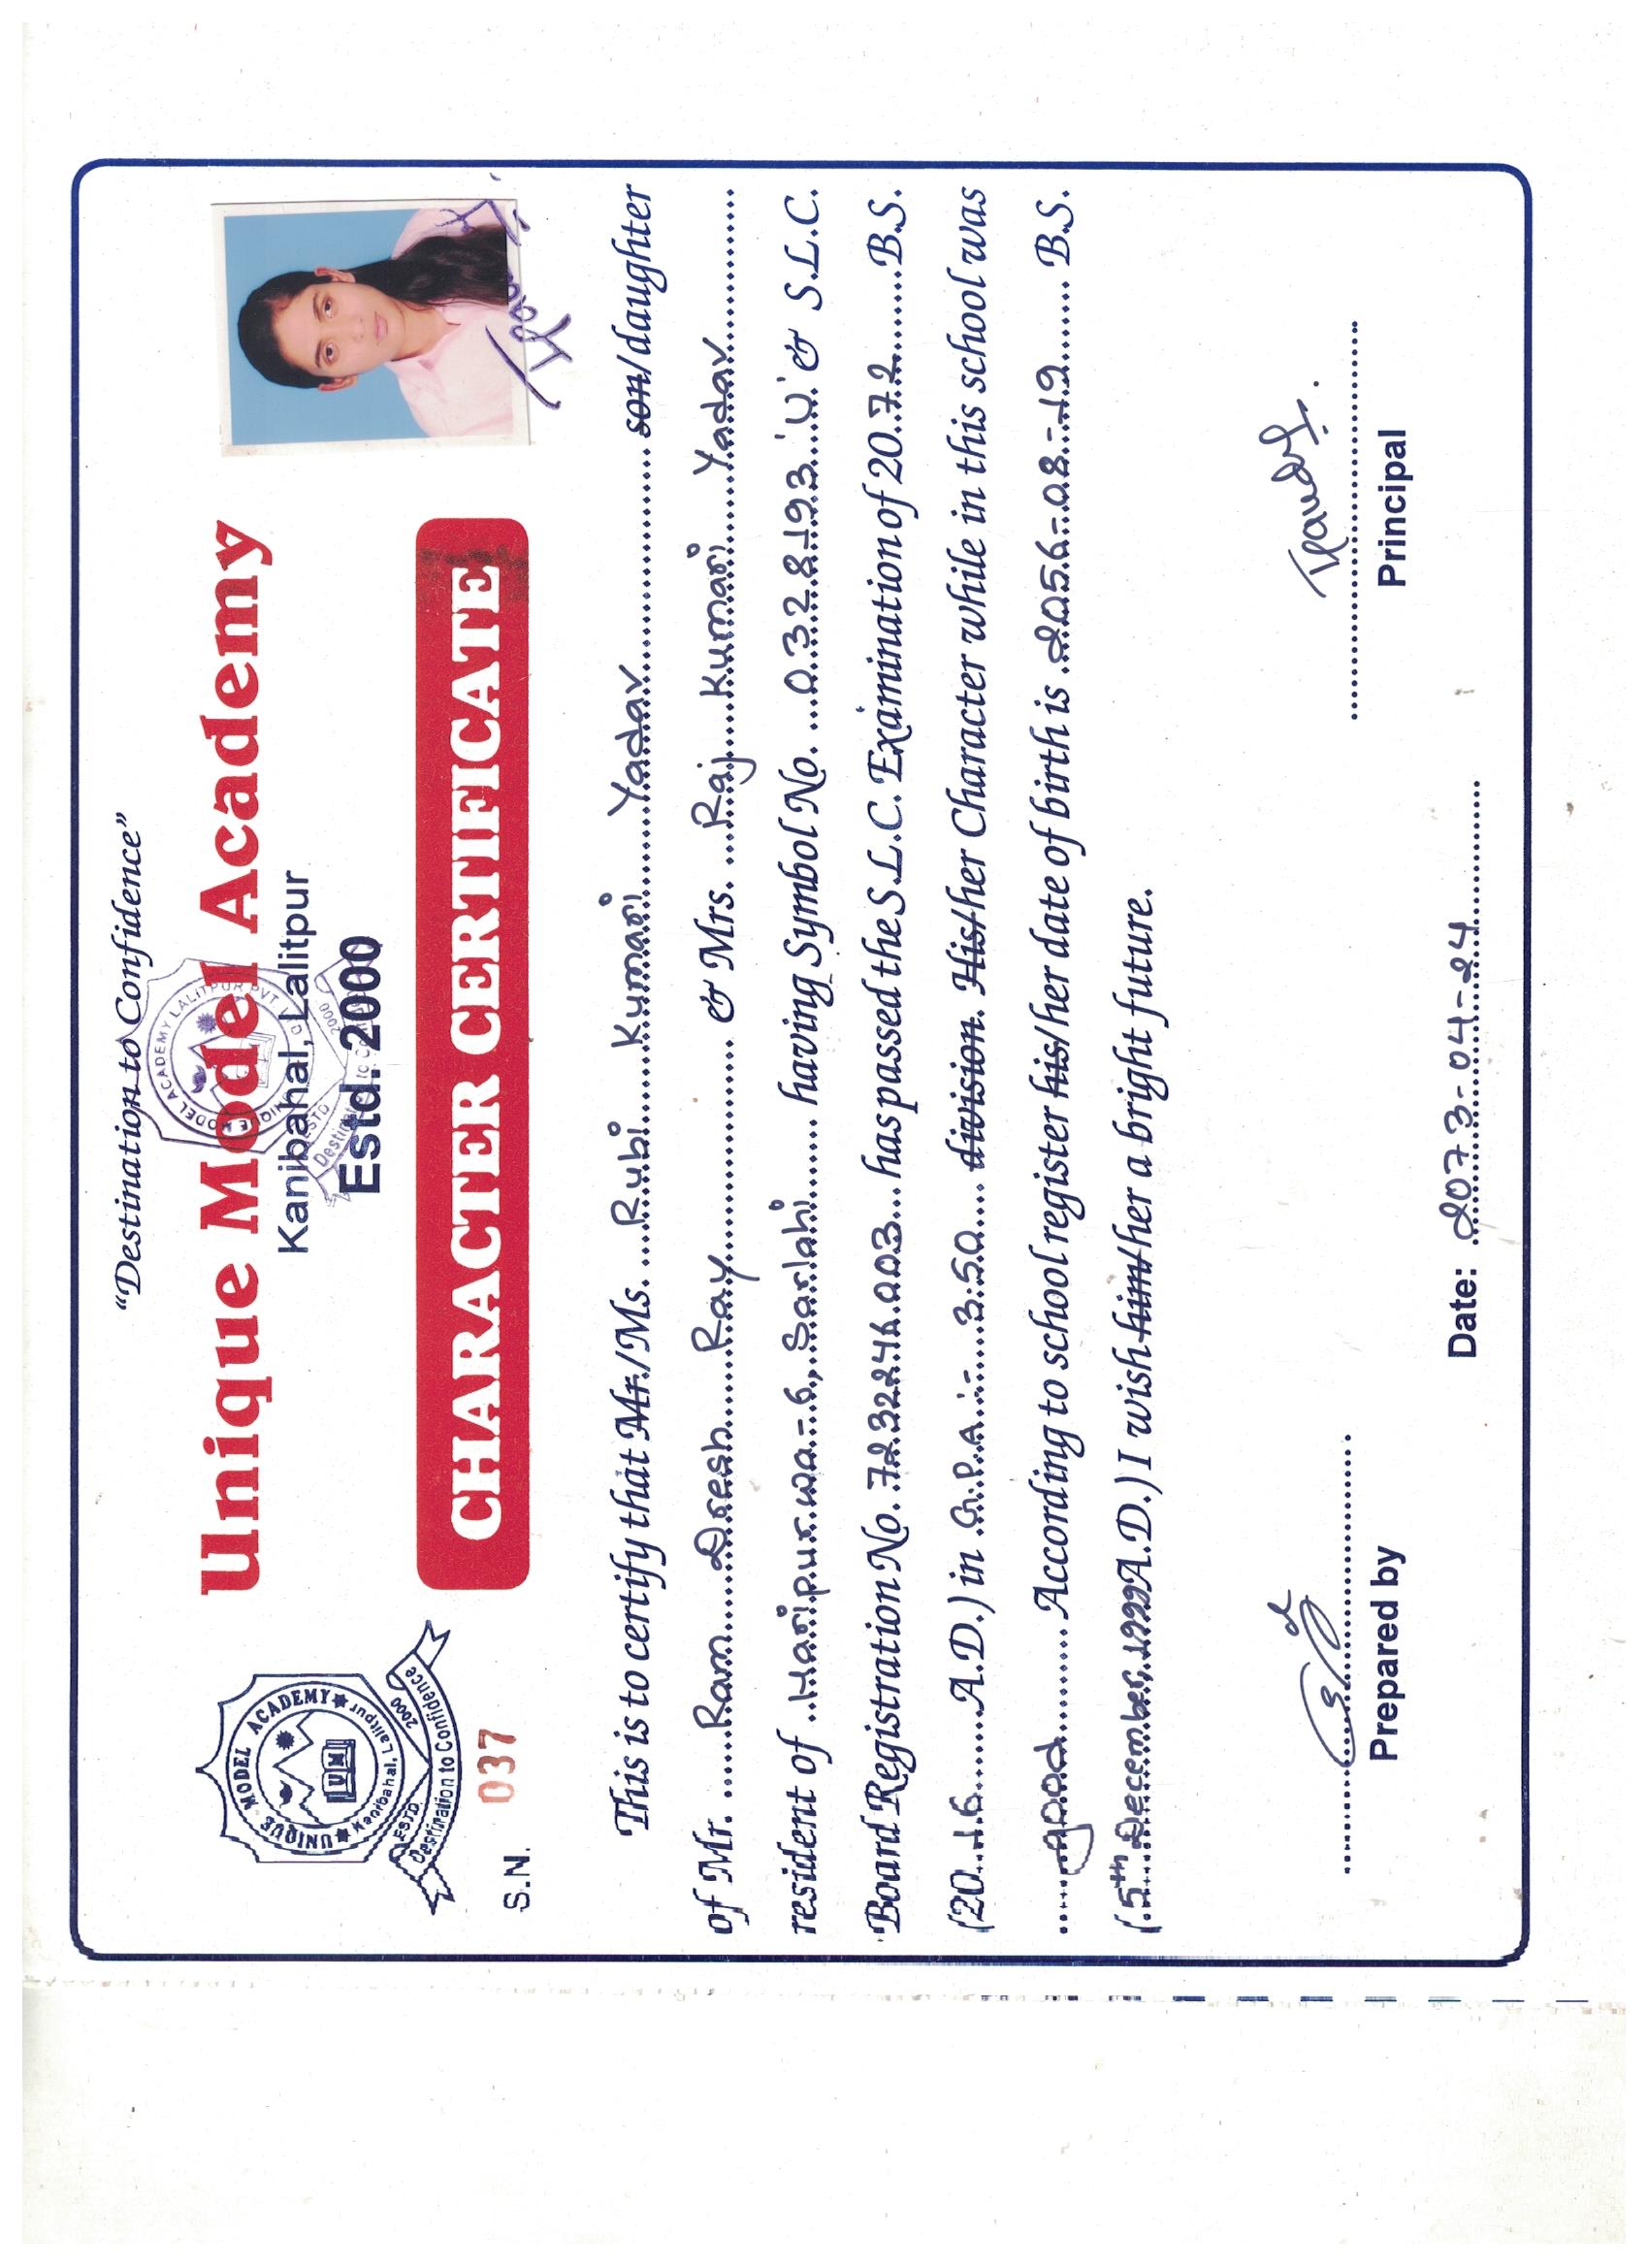 “Destination to Confidence”
Unique Model Academy
Kanibahal, Lalitpur
Estd. 2000
UNIQUE MODEL ACADEMY
UM
Kanibahal, Lalitpur
ESTD 2000
Destination to Confidence
MODEL ACADEMY LALITPUR
ESTD 2000
S.N. 037
CHARACTER CERTIFICATE
This is to certify that Mr./Ms. Rubi Kumari Yadav son/daughter
of Mr. Ram Dresh Ray & Mrs. Raj Kumari Yadav
resident of Haripurwa-6, Sarlahi having Symbol No. 0328193 'U' & S.L.C.
Board Registration No. 7232246003 has passed the S.L.C. Examination of 2072 B.S.
(2016 A.D.) in G.P.A :- 3.50 division. His/her Character while in this school was
good According to school register his/her date of birth is 2056-08-19 B.S.
(5th December, 1999 A.D.) I wish him/her a bright future.
Prepared by
Principal
Date: 2073-04-24